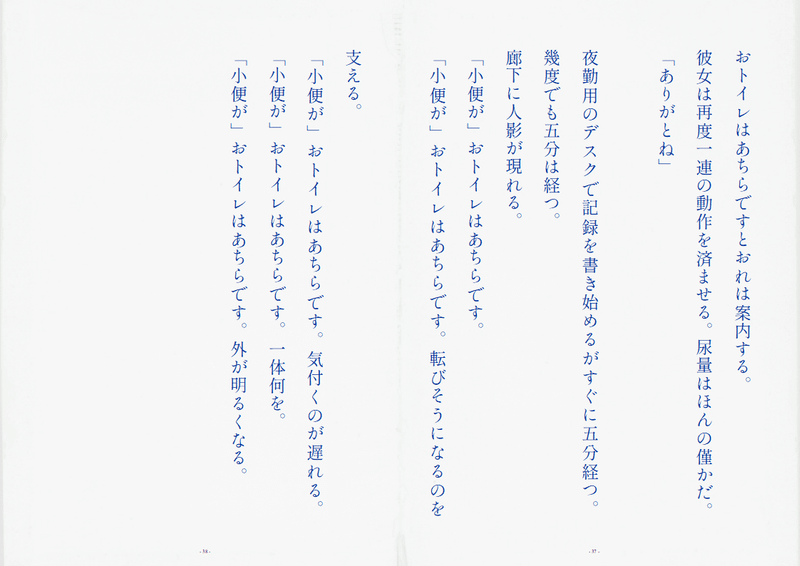 おトイレはあちらですとおれは案内する。
彼女は再度一連の動作を済ませる。尿量はほんの僅かだ。
「ありがとね」
夜勤用のデスクで記録を書き始めるがすぐに五分経つ。
幾度でも五分は経つ。
廊下に人影が現れる。
「小便が」おトイレはあちらです。
「小便が」おトイレはあちらです。転びそうになるのを
支える。
「小便が」おトイレはあちらです。気付くのが遅れる。
「小便が」おトイレはあちらです。一体何を。
「小便が」おトイレはあちらです。外が明るくなる。